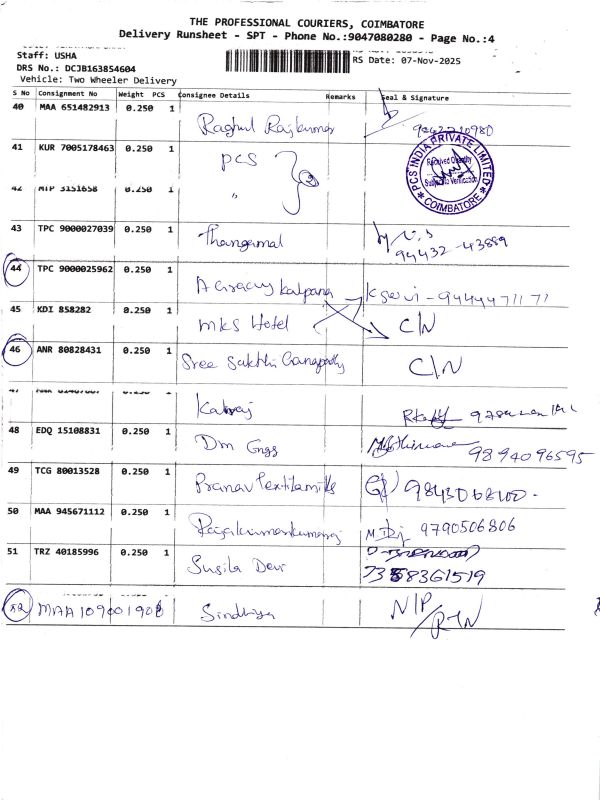 THE PROFESSIONAL COURIERS, COIMBATORE
Delivery Runsheet - SPT - Phone No.:9047080280 - Page No.:4
Staff: USHA
RS Date: 07-Nov-2025
DRS No.: DCJB163854604
Vehicle: Two Wheeler Delivery
S No Consignment No Weight PCS Consignee Details Remarks Seal & Signature
40 MAA 651482913 0.250 1 Raghul Rajkumar
41 KUR 7005178463 0.250 1 PCS
PCS INDIA PRIVATE LIMITED
Received Quantity
Subject to Verification
COIMBATORE
42 MTP 3151658 0.250 1 "
43 TPC 9000027039 0.250 1 Thangamal
94432-43889
44 TPC 9000025962 0.250 1 Kalpana
45 KDI 858282 0.250 1 MKS Hotel C/N
46 ANR 80828431 0.250 1 Sree Sakthi Ganapathy C/N
47 0.250 1
48 EDQ 15108831 0.250 1 Dm Gngs
9894096595
49 TCG 80013528 0.250 1 Pranav Textilamills
50 MAA 945671112 0.250 1 9790506806
51 TRZ 40185996 0.250 1 Susila Devi
7358361519
52 MAA109001908 Sindhiya N/P
/RTN